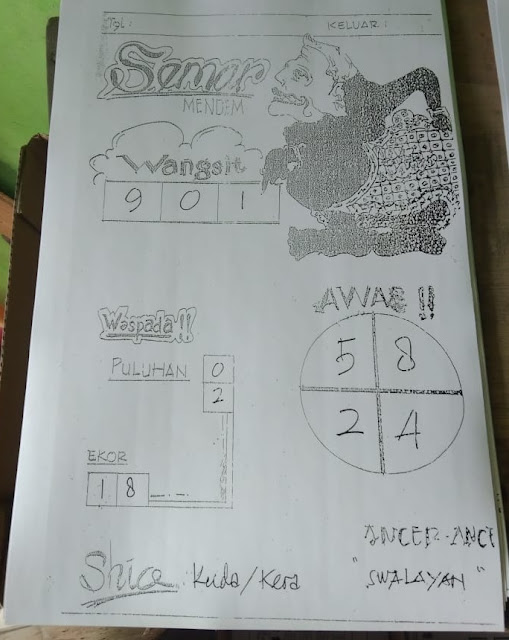 Tgl :
KELUAR :
Semar
MENDEM
Wangsit
9 0 1
Waspada!!
AWAS!!
PULUHAN 0
2
5 8
2 4
EKOR
1 8
Shio : Kuda/Kera
ANCER-ANCE
"SWALAYAN"